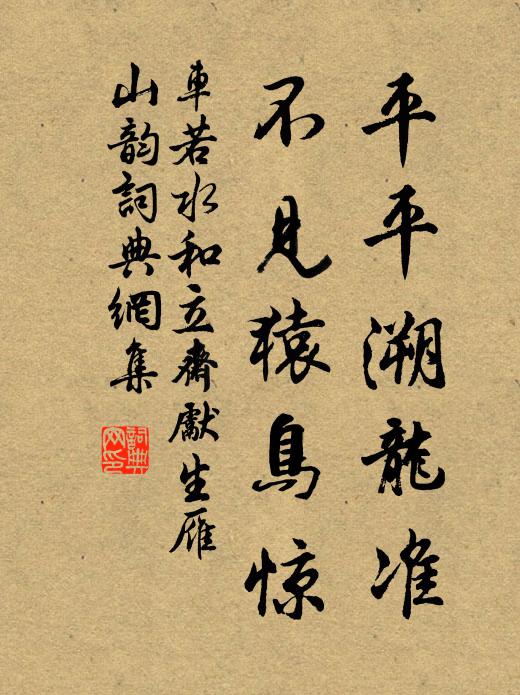 平平溯龍准
不見猿鳥惊
車若水和立齋獻生雁
山韵詞典網集
詞典網印